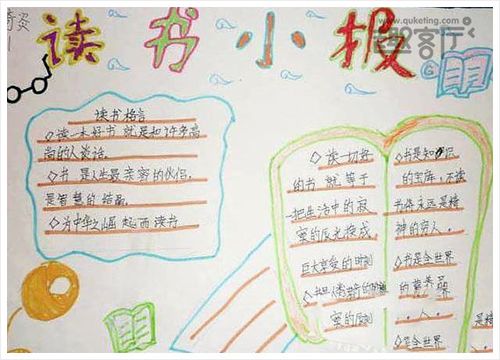 www.quketing.com
客厅
读书小报
读书格言
◇读一本好书就是和许多高
尚的人谈话。
◇书是人类最亲密的伙伴,
是智慧的结晶
◇为中华之崛起而读书
◇读一切好
的书就等于
把生活中的寂
寞的辰光换成
巨大享受的时刻
寞的辰刻
◇书是知识
的宝库,不读
书你永远是精
神的穷人。
◇书是全世界
的营养
人。
◇书是全世界